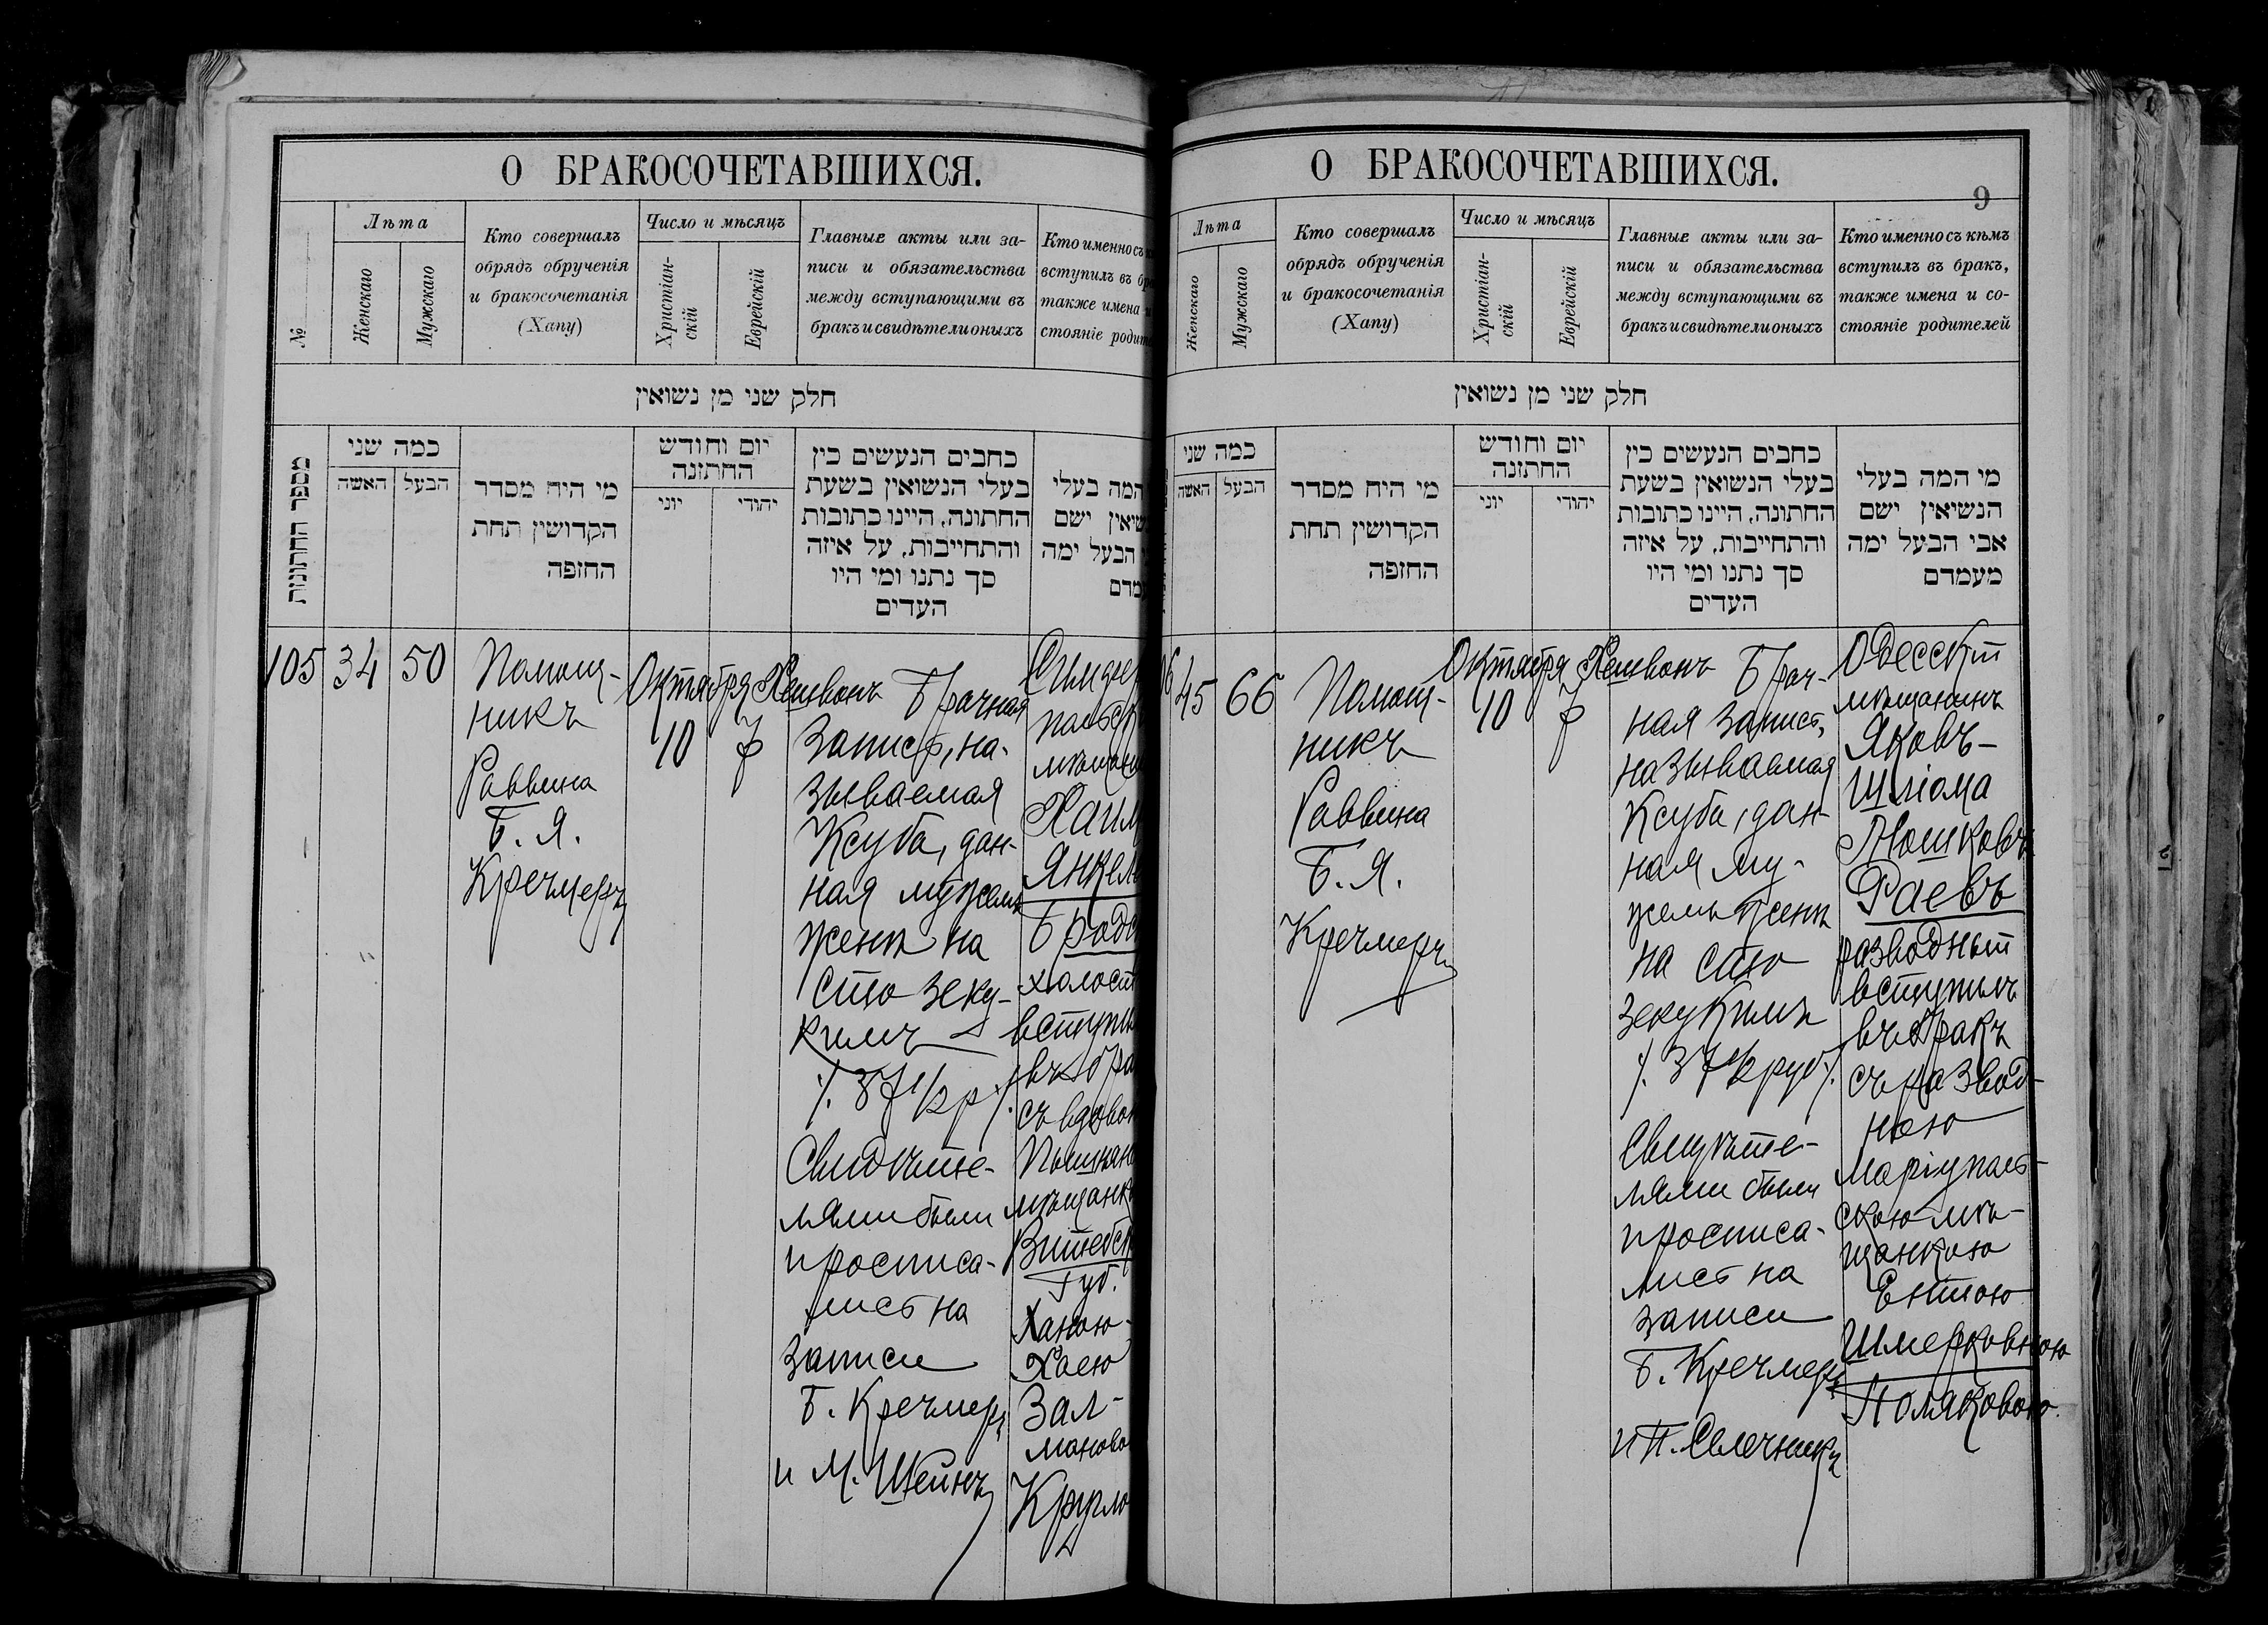 О БРАКОСОЧЕТАВШИХСЯ.
№
Лѣта
Женскаго
Мужскаго
Кто совершалъ
обрядъ обрученія
и бракосочетанія
(Хапу)
Число и мѣсяцъ
Христіан-
скій
Еврейскій
Главные акты или за-
писи и обязательства
между вступающими въ
бракъ и свидѣтели оныхъ
Кто именно съ
вступилъ въ
также имена
стояніе
חלק שני מן נשואין
מספר החתונות
כמה שני
האשה
הבעל
מי היה מסדר
הקדושין תחת
החופה
יום וחודש
החתונה
יוני
יהודי
כתבים הנעשים בין
בעלי הנשואין בשעת
החתונה, היינו כתובות
והתחייבות, על איזה
סך נתנו ומי היו
העדים
המה בעלי
ישם
הבעל ימה
105
34
50
Помощ-
никъ
Раввина
Б. Я.
Кречмеръ
Октября
10
Хешвонъ
7
Брачная
запись, на-
зываемая
Ксуба, дан-
ная мужемъ
женѣ на
сто зеку-
кимъ
/. 37 1/2 р /.
Свидѣте-
лями были
и росписа-
лись на
записи
Б. Кречмеръ
и М. Штейнъ
Хаим
Янкел
Брод
холост
вступи
въ бра
съ вдово
мѣщанк
Витебск
Губ.
Ханою-
Хаею
Зал-
маново
Кругло
О БРАКОСОЧЕТАВШИХСЯ.
9
Лѣта
Женскаго
Мужскаго
Кто совершалъ
обрядъ обрученія
и бракосочетанія
(Хапу)
Число и мѣсяцъ
Христіан-
скій
Еврейскій
Главные акты или за-
писи и обязательства
между вступающими въ
бракъ и свидѣтели оныхъ
Кто именно съ кѣмъ
вступилъ въ бракъ,
также имена и со-
стояніе родителей
חלק שני מן נשואין
כמה שני
האשה
הבעל
מי היה מסדר
הקדושין תחת
החופה
יום וחודש
החתונה
יוני
יהודי
כתבים הנעשים בין
בעלי הנשואין בשעת
החתונה, היינו כתובות
והתחייבות, על איזה
סך נתנו ומי היו
העדים
מי המה בעלי
הנשיאין ישם
אבי הבעל ימה
מעמדם
6
45
66
Помощ-
никъ
Раввина
Б. Я.
Кречмеръ
Октября
10
Хешвонъ
7
Брач-
ная запись,
называемая
Ксуба, дан-
ная му-
жемъ женѣ
на сто
зекукимъ
/. 37 1/2 руб /.
Свидѣте-
лями были
и росписа-
лись на
записи
Б. Кречмеръ
и П.
Одесскій
мѣщанинъ
Яковъ-
Шліома
Мошковъ
Раевъ
разводный
вступилъ
въ бракъ
съ развод-
ною
Маріуполь-
скою мѣ-
щанкою
Ентою
Шмерковною
Поляковою